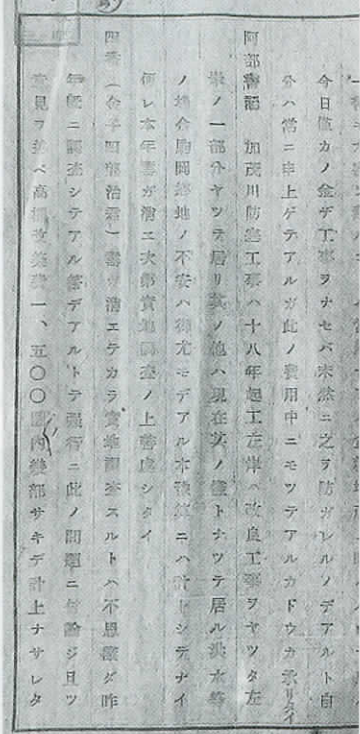 今日僅カノ金デ工事ヲナセバ未然ニ之ヲ防ガレルノデアルト自
分ハ常ニ申上ゲテアルガ此ノ費用中ニモツテアルカドウカ承リタイ
阿部書記 加茂川防塞工事ハ十八年起工左岸ハ改良工事ヲヤツタ左
岸ノ一部分ヤツテ居リ其ノ他ハ現在其ノ儘トナツテ居ル洪水等
ノ場合附図築地ノ不安ハ御尤モデアル本予算ニハ計上シテナイ
何レ本年雪ガ消エ次第實地調査ノ上善良シタイ
四番(金子四郎治君) 雪ガ消エテカラ實地調査スルトハ不思議ダ昨
年既ニ調査シテアル筈デアルトテ強行ニ此ノ問題ニ付論ジ且ツ
意見ヲ述ベ高橋改築費一、五〇〇圓内幾部サキデ計上ナサレタ